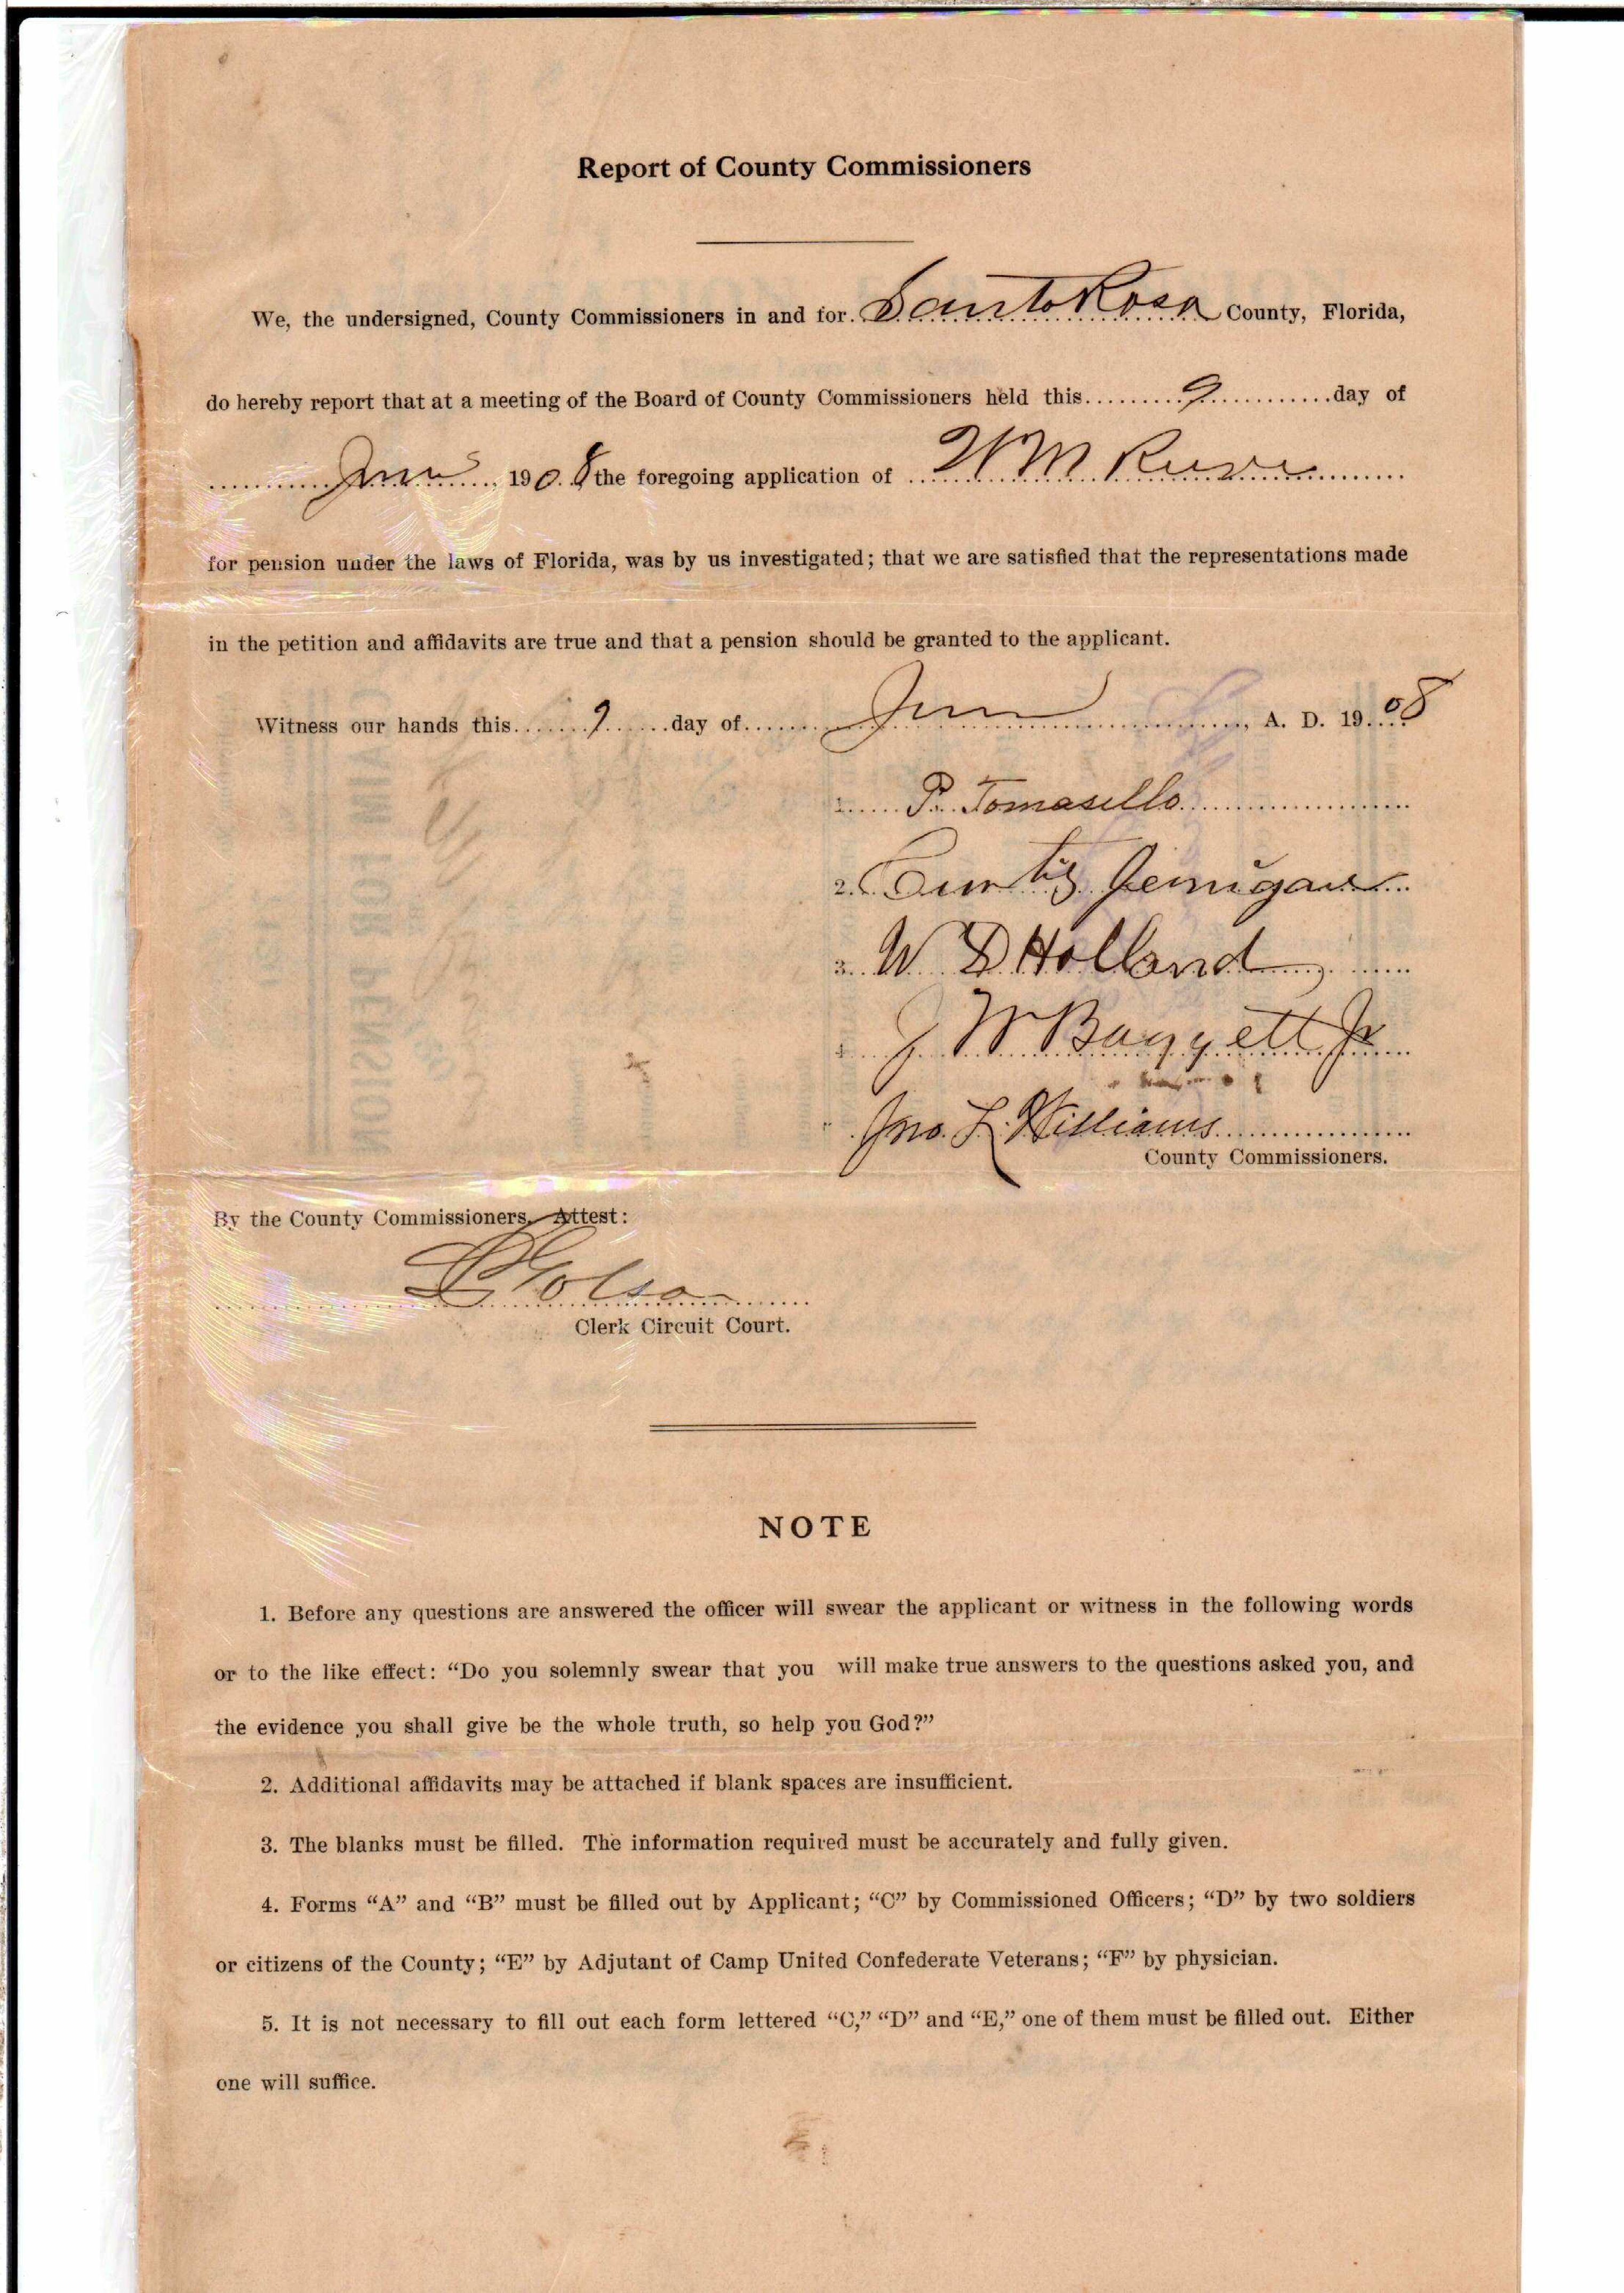 Report of County Commissioners
We, the undersigned, County Commissioners in and for Santa Rosa County, Florida,
do hereby report that at a meeting of the Board of County Commissioners held this 9 day of
1908 the foregoing application of W M
for pension under the laws of Florida, was by us investigated; that we are satisfied that the representations made
in the petition and affidavits are true and that a pension should be granted to the applicant.
Witness our hands this 9 day of , A. D. 1908
1. P. Tomasello
2. Curtis Jernigan
3. W D Holland
4. J W Baggett Jr
Jno. L. Williams
County Commissioners.
By the County Commissioners, Attest:
Golson
Clerk Circuit Court.
NOTE
1. Before any questions are answered the officer will swear the applicant or witness in the following words
or to the like effect: “Do you solemnly swear that you will make true answers to the questions asked you, and
the evidence you shall give be the whole truth, so help you God?”
2. Additional affidavits may be attached if blank spaces are insufficient.
3. The blanks must be filled. The information required must be accurately and fully given.
4. Forms “A” and “B” must be filled out by Applicant; “C” by Commissioned Officers; “D” by two soldiers
or citizens of the County; “E” by Adjutant of Camp United Confederate Veterans; “F” by physician.
5. It is not necessary to fill out each form lettered “C,” “D” and “E,” one of them must be filled out. Either
one will suffice.